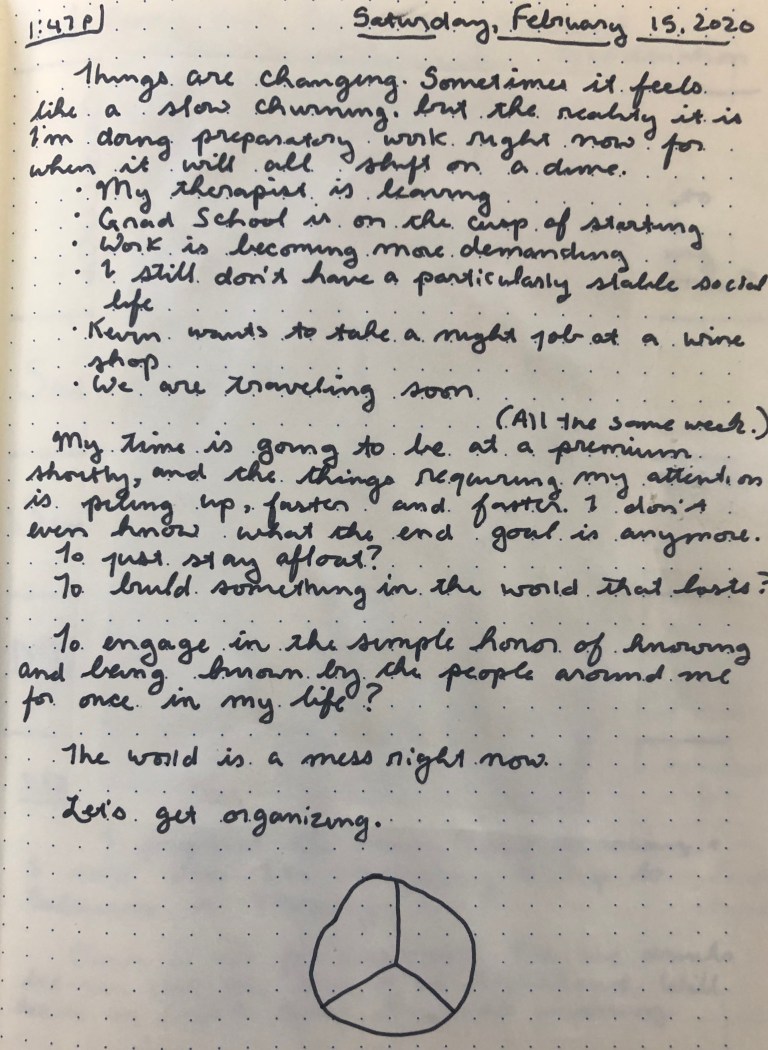 1:47p
Saturday, February 15, 2020
Things are changing. Sometimes it feels
like a slow churning, but the reality it is
I'm doing preparatory work right now for
when it will all shift on a dime.
· My therapist is leaving
· Grad School is on the cusp of starting
· Work is becoming more demanding
· I still don't have a particularly stable social
life
· Kevin wants to take a night job at a wine
shop
· We are traveling soon
(All the same week.)
My time is going to be at a premium
shortly, and the things requiring my attention
is piling up, faster and faster. I don't
even know what the end goal is anymore.
To just stay afloat?
To build something in the world that lasts?
To engage in the simple honor of knowing
and being known by the people around me
for once in my life?
The world is a mess right now.
Let's get organizing.